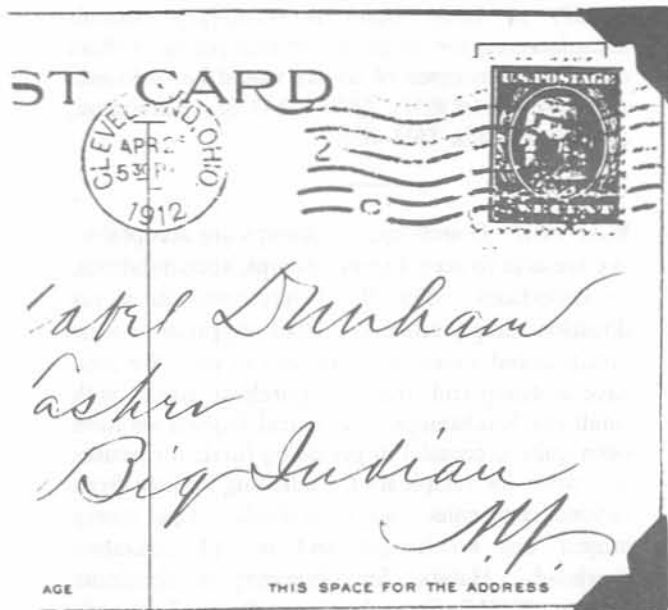 ST CARD
CLEVELAND, OHIO
APR 2
530 P
1912
2
C
U.S. POSTAGE
abel Dunham
Big Indian
N.Y.
AGE
THIS SPACE FOR THE ADDRESS